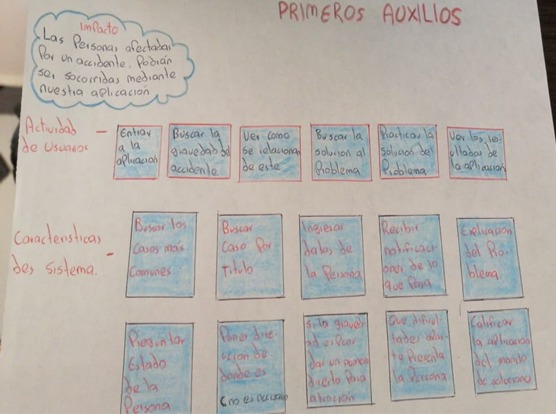 PRIMEROS AUXILIOS
Impacto
Las Personas afectadas
Por un accidente. Podran
ser socorridas mediante
nuestra aplicacion
Actividad
de usuarios
Entrar
a la
aplicacion
Buscar la
gravedad del
accidente
Ver como
se relaciona
de este
Buscar la
solucion al
Problema
Practicar la
solucion del
Problema
Ver los
de
la aplicacion
Caracteristicas
des sistema.
Buscar los
Casos mas
Comunes
Buscar
Caso Por
Titulo
Ingresar
datos de
la Persona
Recibir
de lo
que Pasa
Evaluacion
del Pro-
blema.
Preguntar
Estado
de la
Persona
Poner dire-
ccion de
donde es
si la
dar un
directo Para
atencion
Que dificul-
tades
te Presenta
la Persona
Calificar
la aplicacion
del
de soluciono